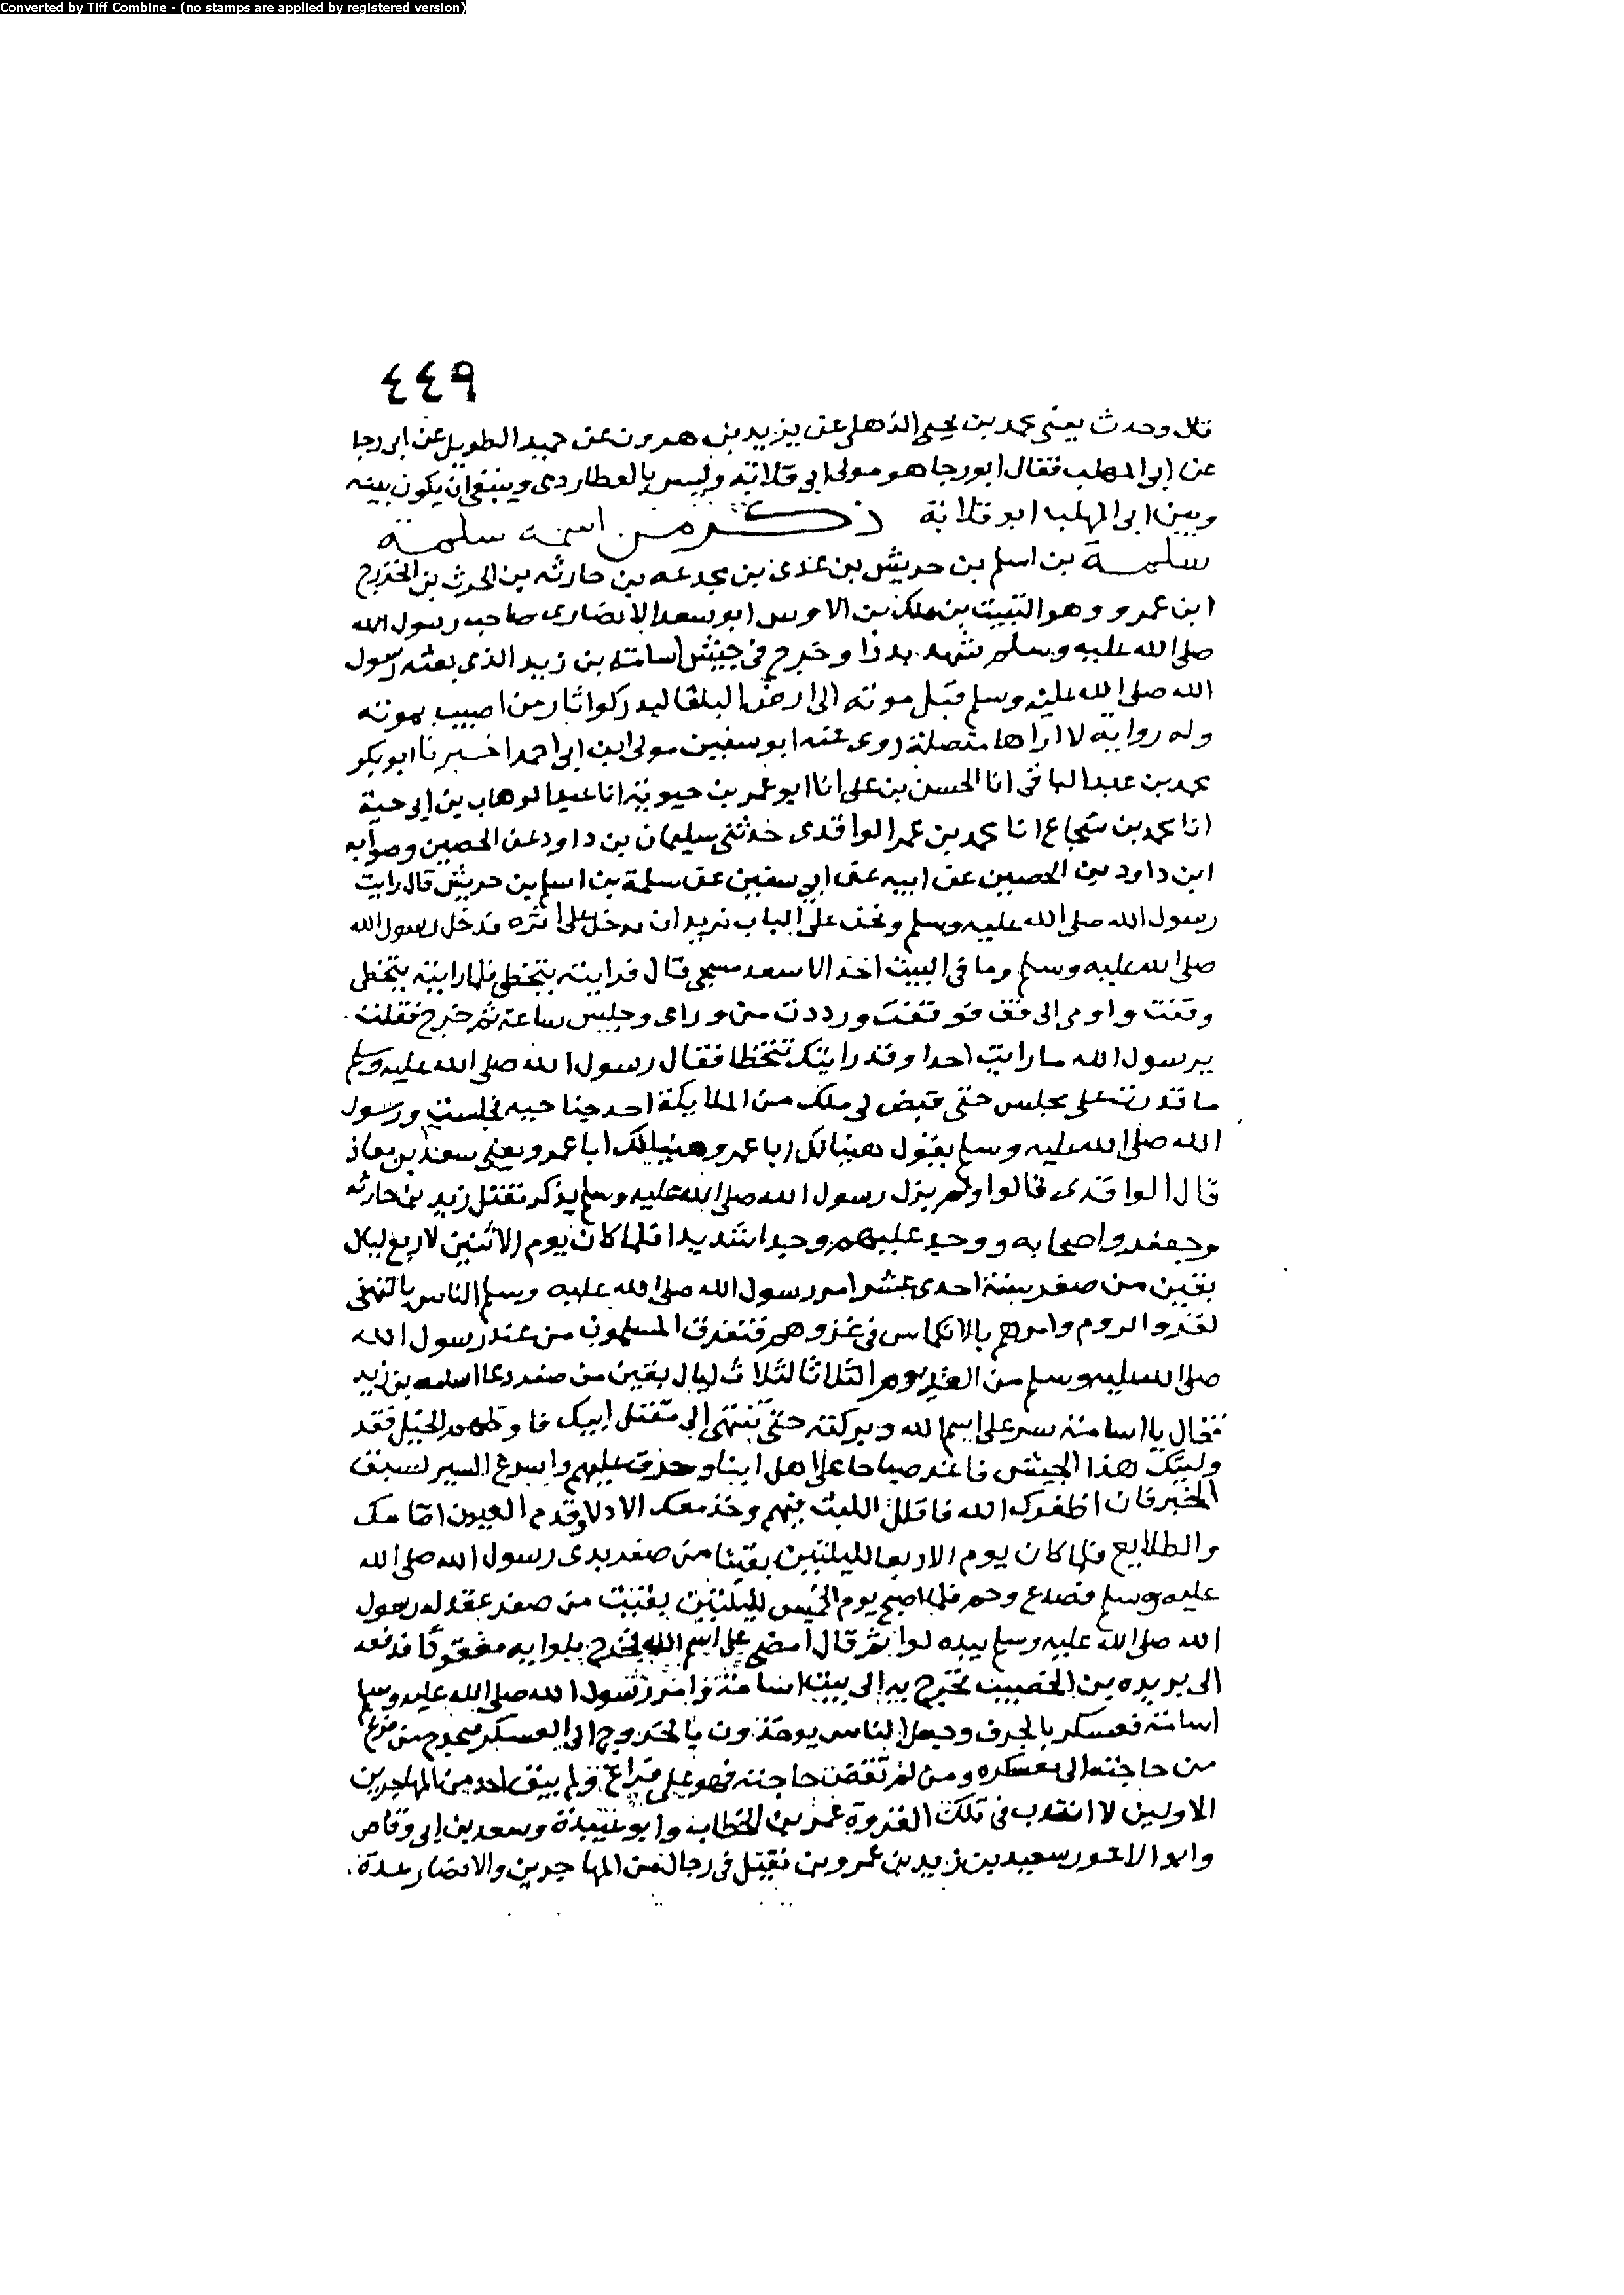 Converted by Tiff Combine - (no stamps are applied by registered version)
٤٤٩
قال وحدث يعني محمد بن يحيى الذهلي عن يزيد بن هرون عن حميد الطويل عن ابي رجا
عن ابي المهلب فقال ابو رجا هو مولى ابي قلابة وليس بالعطاردي وينبغي ان يكون بينه
وبين ابي المهلب ابو قلابة ذكر من اسمه سلمة
سلمة بن اسلم بن حريش بن عدي بن مجدعه بن حارثه بن الحرث بن الخزرج
ابن عمرو وهو النبيت بن ملك بن الاوس ابو سعد الانصاري صاحب رسول الله
صلى الله عليه وسلم شهد بدرا وخرج في جيش اسامة بن زيد الذي بعثه رسول
الله صلى الله عليه وسلم قبل موته الى ارض البلقا ليدركوا ثار من اصيب بموته
وله رواية لا اراها متصلة روى عنه ابو سفين مولى ابن ابي احمد اخبرنا ابو بكر
محمد بن عبد الباقي انا الحسن بن علي انا ابو عمر بن حيوية انا عبد الوهاب بن ابي حية
انا محمد بن شجاع انا محمد بن عمر الواقدي حدثني سليمان بن داود عن الحصين وصوابه
ابن داود بن الحصين عن ابيه عن ابي سفين عن سلمة بن اسلم بن حريش قال رايت
رسول الله صلى الله عليه وسلم ونحن على الباب نريد ان ندخل على اثره فدخل رسول الله
صلى الله عليه وسلم وما في البيت احد الا سعد مسجى قال فرايته يتخطى فلما رايته يتخطى
وقفت واومى الى قف فوقفت ورددت من وراى وجلس ساعة ثم خرج فقلت
يرسول الله ما رايت احدا وقد رايتك تتخطا فقال رسول الله صلى الله عليه وسلم
ما قدرت على مجلس حتى قبض لي ملك من الملايكة احد جناحيه فجلست ورسول
الله صلى الله عليه وسلم يقول هنيا لك ابا عمرو هنيا لك ابا عمرو يعني سعد بن معاذ
قال الواقدي قالوا ولم يزل رسول الله صلى الله عليه وسلم يذكر مقتل زيد بن حارثه
وجعفر واصحابه ووجد عليهم وجدا شديدا فلما كان يوم الاثنين لاربع ليال
بقين من صفر سنة احدى عشر امر رسول الله صلى الله عليه وسلم الناس بالتهيي
لغزو الروم وامرهم بالانكماس في غزوهم فتفرق المسلمون من عند رسول الله
صلى الله عليه وسلم من الغد يوم الثلاثا لثلاث ليال بقين من صفر دعا اسامه بن زيد
فقال يا اسامة سر على اسم الله وبركته حتى تنتهي الى مقتل ابيك فاوطهم الخيل فقد
وليتك هذا الجيش فاغد صباحا على اهل ابنا وحرق عليهم واسرع السير تسبق
الخبر فان اظفرك الله فاقلل اللبث فيهم وخذ معك الادلا وقدم العيون امامك
والطلايع فلما كان يوم الاربعا لليلتين بقيتا من صفر بدى رسول الله صلى الله
عليه وسلم فصدع وحم فلما اصبح يوم الخميس لليلتين بقيت من صفر عقد له رسول
الله صلى الله عليه وسلم بيده لوا ثم قال امض على اسم الله فخرج بلوايه معقودا فدفعه
الى بريده بن الحصيب فخرج به الى بيت اسامة وامر رسول الله صلى الله عليه وسلم
اسامة فعسكر بالجرف وجعل الناس يوخذون بالخروج الى العسكر فيخرج من فرغ
من حاجته الى معسكره ومن لم تقض حاجته فهو على فراغ ولم يبق احد من المهاجرين
الاولين الا انتدب في تلك الغزوة عمر بن الخطاب وابو عبيدة وسعد بن ابي وقاص
وابو الاعور سعيد بن زيد بن عمرو بن نفيل في رجال من المهاجرين والانصار عدة